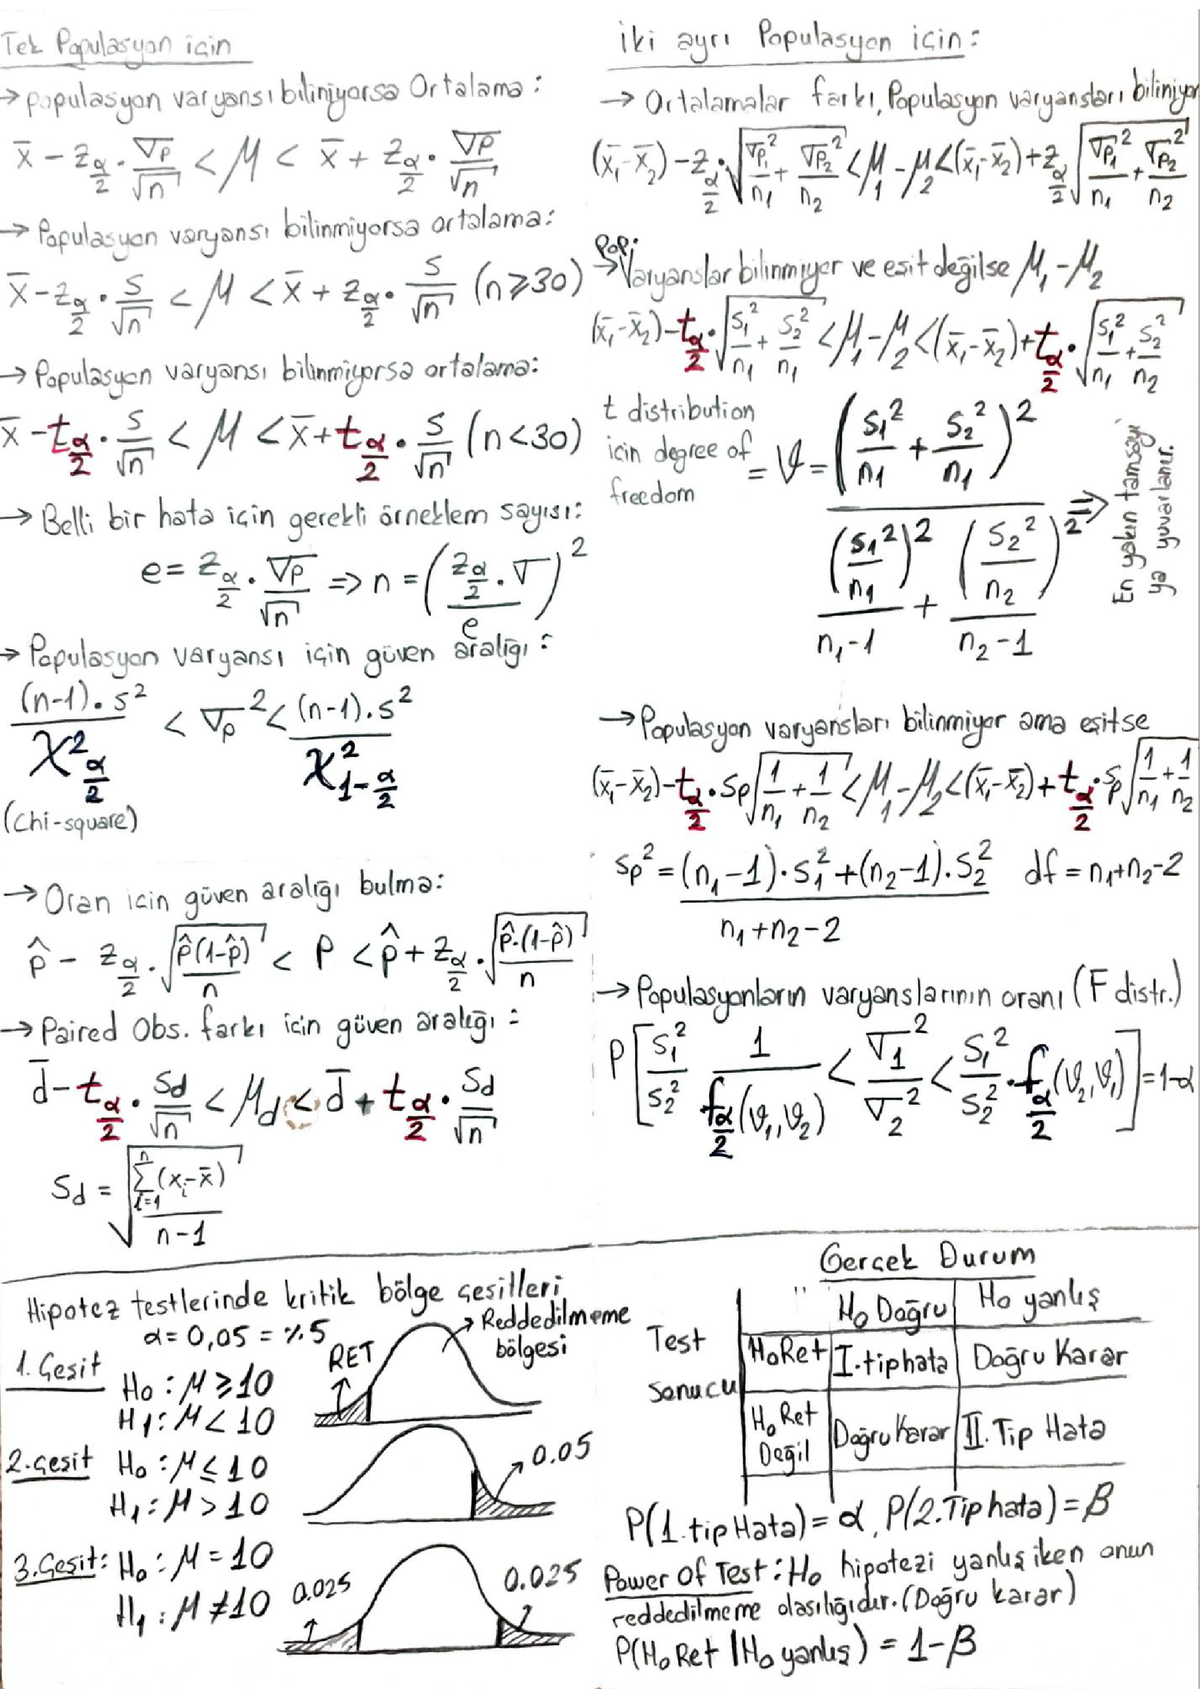 Tek Populasyon için
→ populasyon varyansı biliniyorsa Ortalama :
x̄ - z_α/2 . σp/√n < μ < x̄ + z_α/2 . σp/√n
→ Populasyon varyansı bilinmiyorsa ortalama:
x̄ - z_α/2 . s/√n < μ < x̄ + z_α/2 . s/√n (n≥30)
→ Populasyon varyansı bilinmiyorsa ortalama:
x̄ - t_α/2 . s/√n < μ < x̄ + t_α/2 . s/√n (n<30)
→ Belli bir hata için gerekli örneklem sayısı:
e = z_α/2 . σp/√n => n = (z_α/2 . σ / e)²
→ Populasyon varyansı için güven aralığı :
(n-1).s² / χ²_α/2 < σp² < (n-1).s² / χ²_1-α/2
(Chi-square)
→ Oran için güven aralığı bulma:
p̂ - z_α/2 . √(p̂(1-p̂)/n) < P < p̂ + z_α/2 . √(p̂.(1-p̂)/n)
→ Paired Obs. farkı için güven aralığı :
d̄ - t_α/2 . Sd/√n < μd < d̄ + t_α/2 . Sd/√n
Sd = √(Σ_i=1^n (xi-x̄) / n-1)
iki ayrı Populasyon için :
→ Ortalamalar farkı, Populasyon varyansları biliniyor
(x̄1-x̄2) - z_α/2 . √(σp1²/n1 + σp2²/n2) < μ1-μ2 < (x̄1-x̄2) + z_α/2 √(σp1²/n1 + σp2²/n2)
Pop.
→ Varyanslar bilinmiyor ve eşit değilse μ1-μ2
(x̄1-x̄2) - t_α/2 . √(s1²/n1 + s2²/n1) < μ1-μ2 < (x̄1-x̄2) + t_α/2 . √(s1²/n1 + s2²/n2)
t distribution
için degree of
freedom
= ϑ = (s1²/n1 + s2²/n1)² / ((s1²/n1)²/(n1-1) + (s2²/n2)²/(n2-1)) =>
En yakın tamsayı
ya yuvarlanır.
→ Populasyon varyansları bilinmiyor ama eşitse
(x̄1-x̄2) - t_α/2 . Sp √(1/n1 + 1/n2) < μ1-μ2 < (x̄1-x̄2) + t_α/2 . Sp √(1/n1 + 1/n2)
Sp² = (n1-1).s1² + (n2-1).s2² / n1+n2-2 df = n1+n2-2
→ Populasyonların varyanslarının oranı (F distr.)
P[s1²/s2² 1/f_α/2(ϑ1,ϑ2) < σ1²/σ2² < s1²/s2² . f_α/2(ϑ2,ϑ1)] = 1-α
Hipotez testlerinde kritik bölge çeşitleri
α = 0,05 = %5
RET
Reddedilmeme
bölgesi
1. Çeşit
H0 : μ ≥ 10
H1 : μ < 10
2. çeşit H0 : μ ≤ 10
H1 : μ > 10
0.05
3. Çeşit: H0 : μ = 10
H1 : μ ≠ 10
0.025
0.025
Gerçek Durum
"
H0 Doğru
H0 yanlış
Test
sonucu
H0 Ret
I. tip hata
Doğru Karar
H0 Ret
Değil
Doğru Karar
II. Tip Hata
P(1. tip Hata) = α, P(2. Tip hata) = β
Power Of Test : H0 hipotezi yanlış iken onun
reddedilmeme olasılığıdır. (Doğru karar)
P(H0 Ret | H0 yanlış) = 1-β